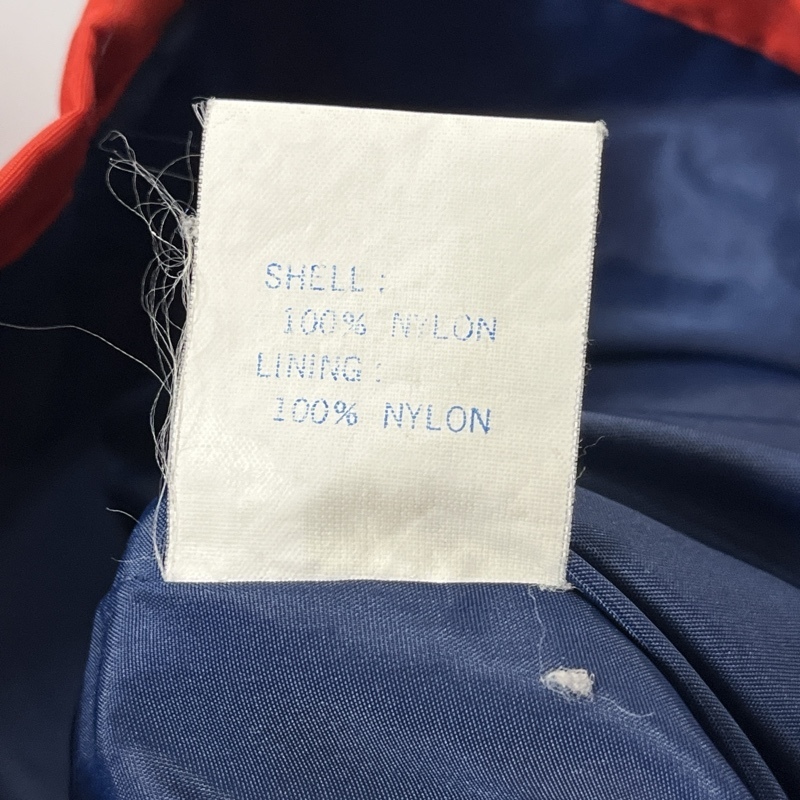 SHELL:
100% NYLON
LINING:
100% NYLON